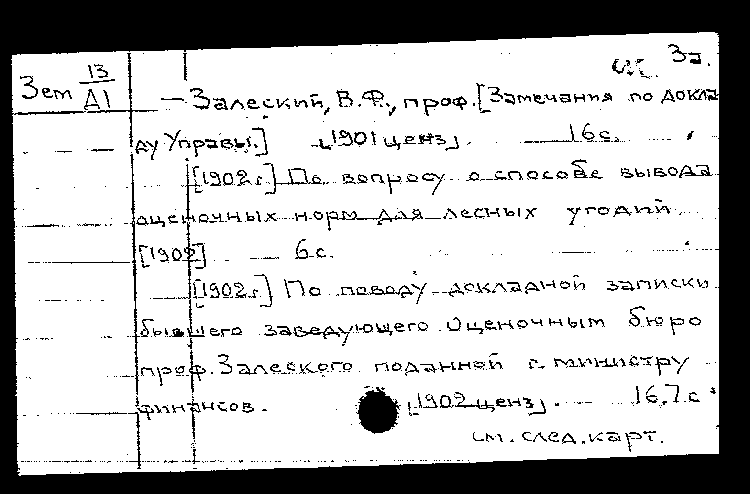 За.
Зем 13/Д1
— Залеский, В.Ф., проф. [Замечания по докла
ду Управы.] [1901 ценз]. 16 с.
[1902 г.] По вопросу о способе вывода
оценочных норм для лесных угодий.
[1902] 6 с.
[1902 г.] По поводу докладной записки
бывшего заведующего Оценочным бюро
проф. Залеского поданной г. министру
финансов. [1902 ценз]. — 16,7 с.
см. след. карт.